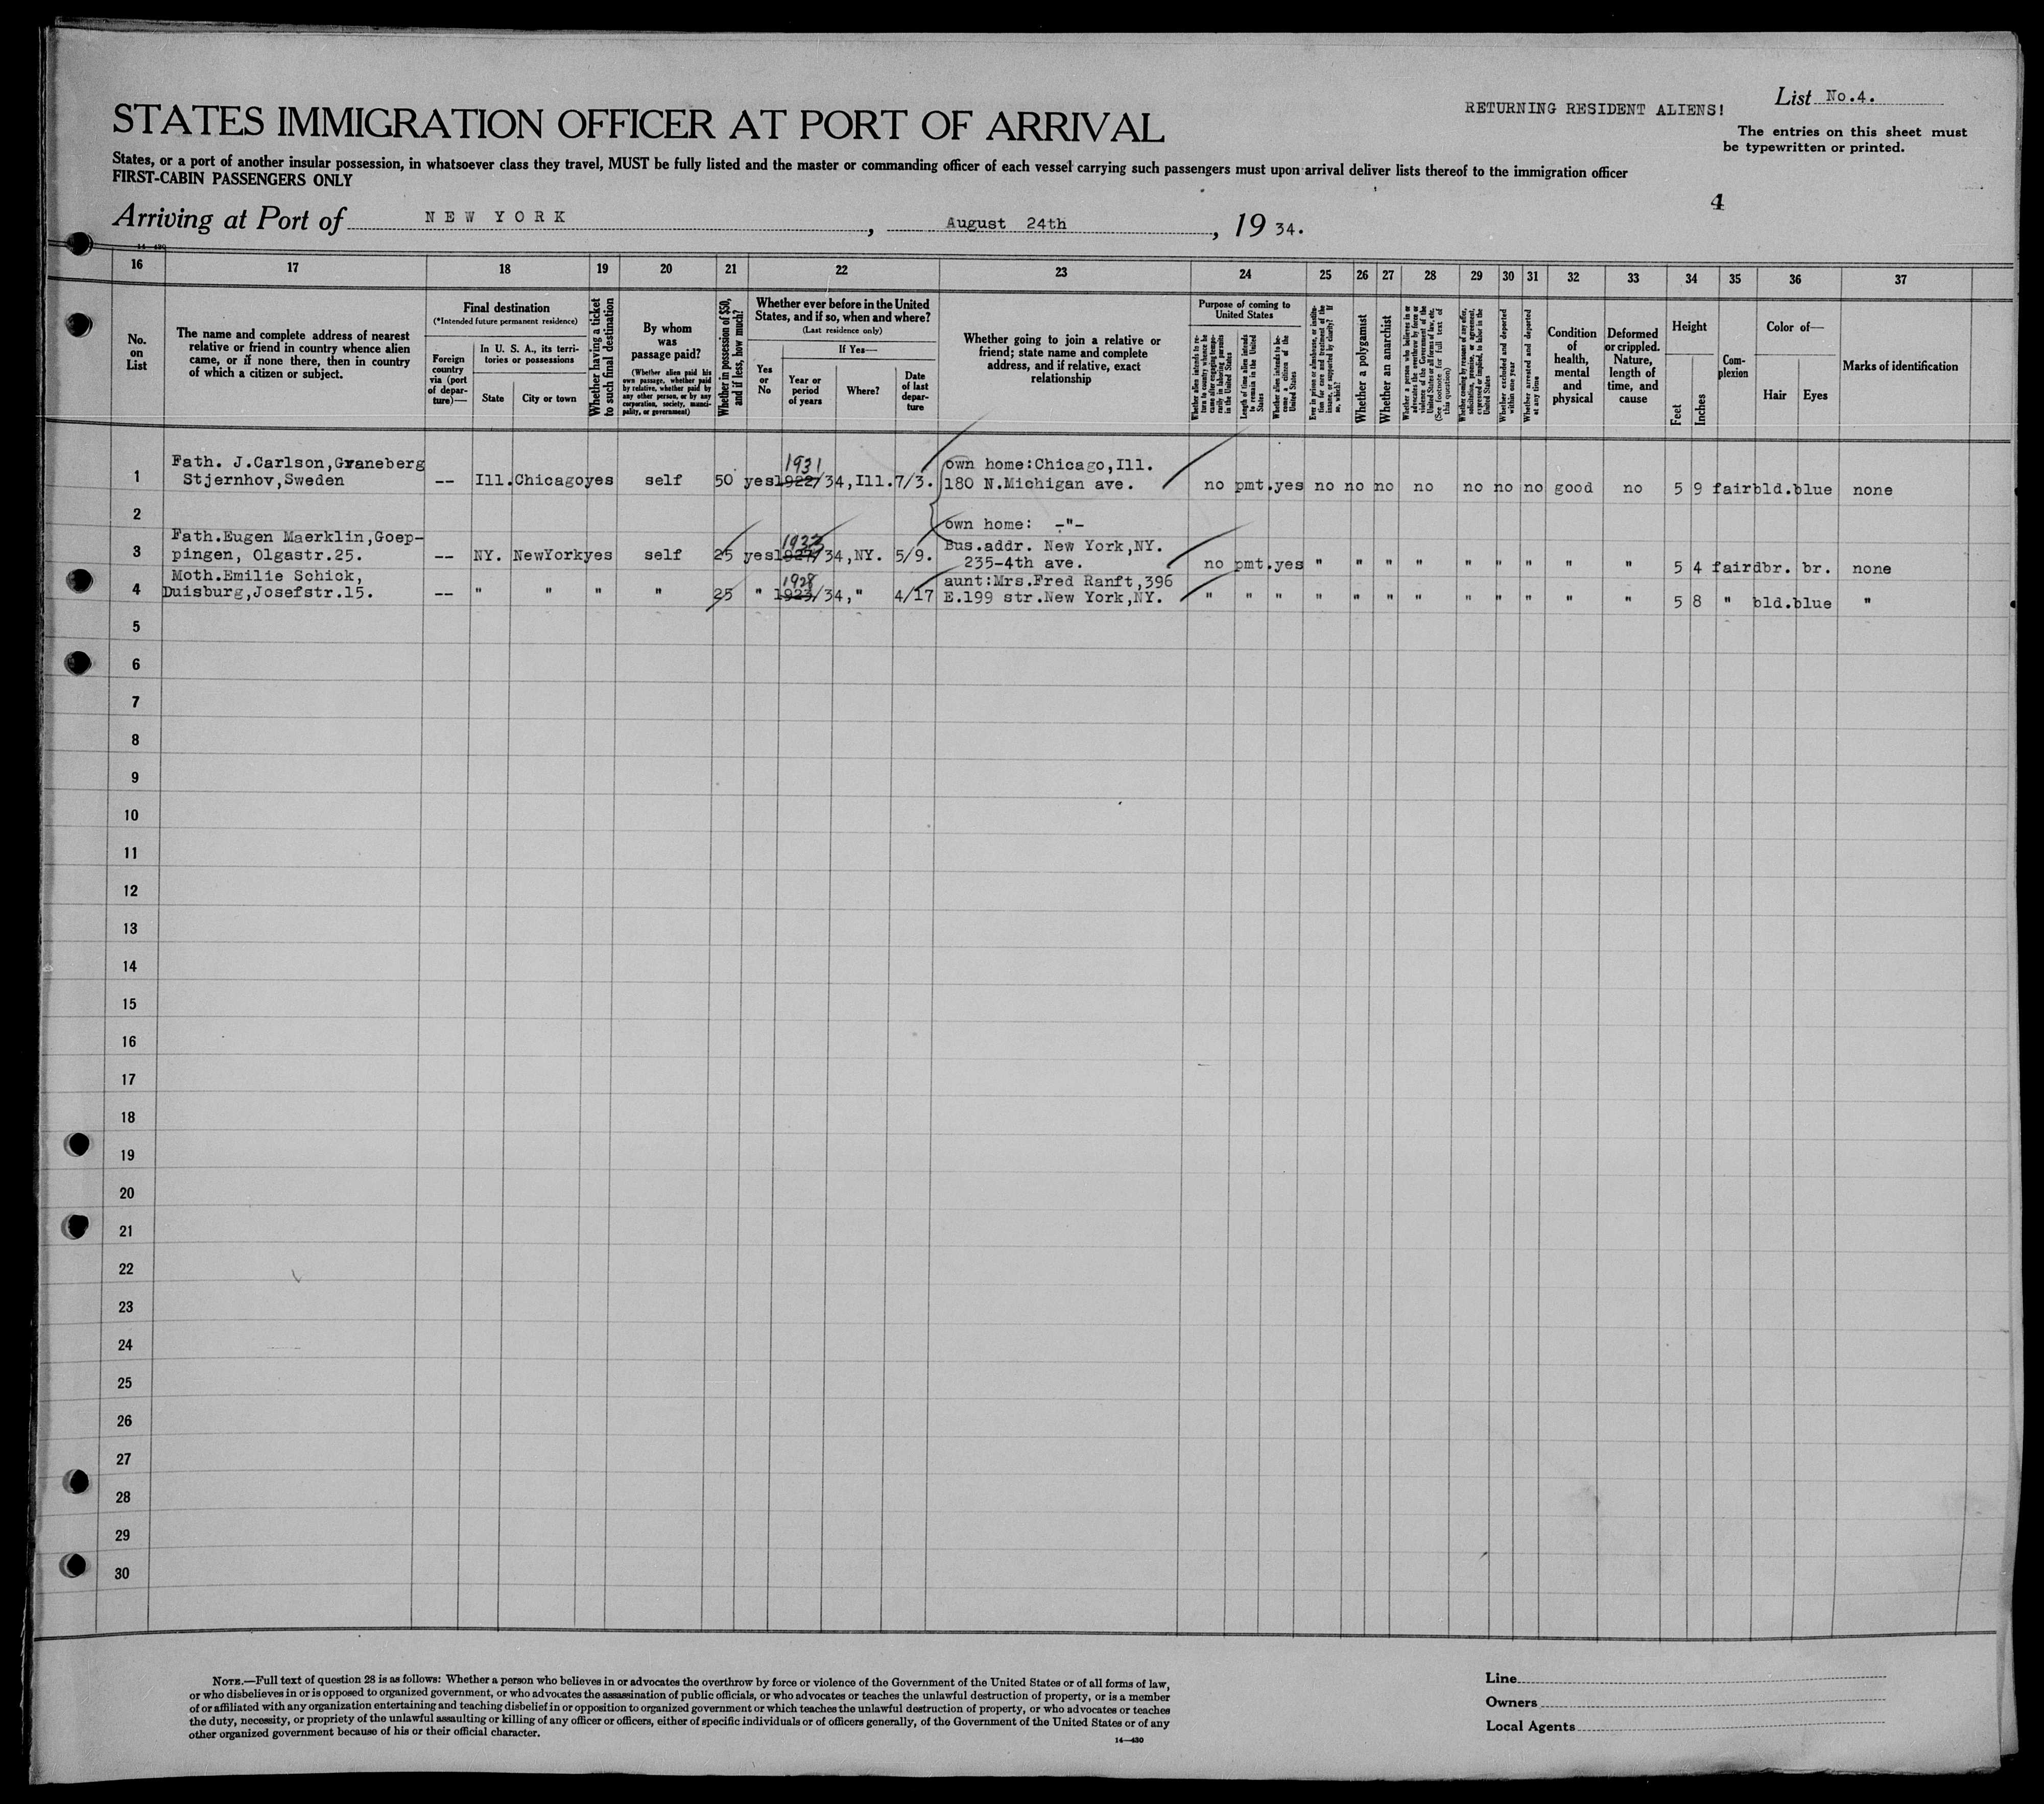 List No.4.
RETURNING RESIDENT ALIENS!
STATES IMMIGRATION OFFICER AT PORT OF ARRIVAL
The entries on this sheet must
be typewritten or printed.
States, or a port of another insular possession, in whatsoever class they travel, MUST be fully listed and the master or commanding officer of each vessel carrying such passengers must upon arrival deliver lists thereof to the immigration officer
FIRST-CABIN PASSENGERS ONLY
4
Arriving at Port of NEW YORK, August 24th, 1934.
14—430
16 17 18 19 20 21 22 23 24 25 26 27 28 29 30 31 32 33 34 35 36 37
No.
on
List
The name and complete address of nearest
relative or friend in country whence alien
came, or if none there, then in country
of which a citizen or subject.
Final destination
(*Intended future permanent residence)
Foreign
country
via (port
of depar-
ture)—
In U. S. A., its terri-
tories or possessions
State
City or town
Whether having a ticket
to such final destination
By whom
was
passage paid?
(Whether alien paid his
own passage, whether paid
by relative, whether paid by
any other person, or by any
corporation, society, munici-
pality, or government)
Whether in possession of $50,
and if less, how much?
Whether ever before in the United
States, and if so, when and where?
(Last residence only)
Yes
or
No
If Yes—
Year or
period
of years
Where?
Date
of last
depar-
ture
Whether going to join a relative or
friend; state name and complete
address, and if relative, exact
relationship
Purpose of coming to
United States
Whether alien intends to re-
turn to country whence he
came after engaging tempo-
rarily in laboring pursuits
in the United States
Length of time alien intends
to remain in the United
States
Whether alien intends to be-
come a citizen of the
United States
Ever in prison or almshouse, or institu-
tion for care and treatment of the
insane, or supported by charity? If
so, which?
Whether a polygamist
Whether an anarchist
Whether a person who believes in or
advocates the overthrow by force or
violence of the Government of the
United States or all forms of law, etc.
(See footnote for full text of
this question)
Whether coming by reasons of any offer,
solicitation, promise, or agreement,
expressed or implied, to labor in the
United States
Whether excluded and deported
within one year
Whether arrested and deported
at any time
Condition
of
health,
mental
and
physical
Deformed
or crippled.
Nature,
length of
time, and
cause
Height
Feet
Inches
Com-
plexion
Color of—
Hair
Eyes
Marks of identification
Fath. J.Carlson,Graneberg 1931 own home:Chicago,Ill.
1 Stjernhov,Sweden -- Ill. Chicago yes self 50 yes 1922/34,Ill. 7/3. 180 N.Michigan ave. no pmt. yes no no no no no no no good no 5 9 fair bld. blue none
2 own home: -"-
Fath.Eugen Maerklin,Goep- 1933 Bus.addr. New York,NY.
3 pingen, Olgastr.25. -- NY. NewYork yes self 25 yes 1927/34,NY. 5/9. 235-4th ave. no pmt. yes " " " " " " " " " 5 4 fair dbr. br. none
Moth.Emilie Schick, 1928 aunt:Mrs.Fred Ranft,396
4 Duisburg,Josefstr.15. -- " " " " 25 " 1923/34," 4/17 E.199 str.New York,NY. " " " " " " " " " " " " 5 8 " bld. blue "
5
6
7
8
9
10
11
12
13
14
15
16
17
18
19
20
21
22
23
24
25
26
27
28
29
30
NOTE.—Full text of question 28 is as follows: Whether a person who believes in or advocates the overthrow by force or violence of the Government of the United States or of all forms of law,
or who disbelieves in or is opposed to organized government, or who advocates the assassination of public officials, or who advocates or teaches the unlawful destruction of property, or is a member
of or affiliated with any organization entertaining and teaching disbelief in or opposition to organized government or which teaches the unlawful destruction of property, or who advocates or teaches
the duty, necessity, or propriety of the unlawful assaulting or killing of any officer or officers, either of specific individuals or of officers generally, of the Government of the United States or of any
other organized government because of his or their official character.
14—430
Line
Owners
Local Agents